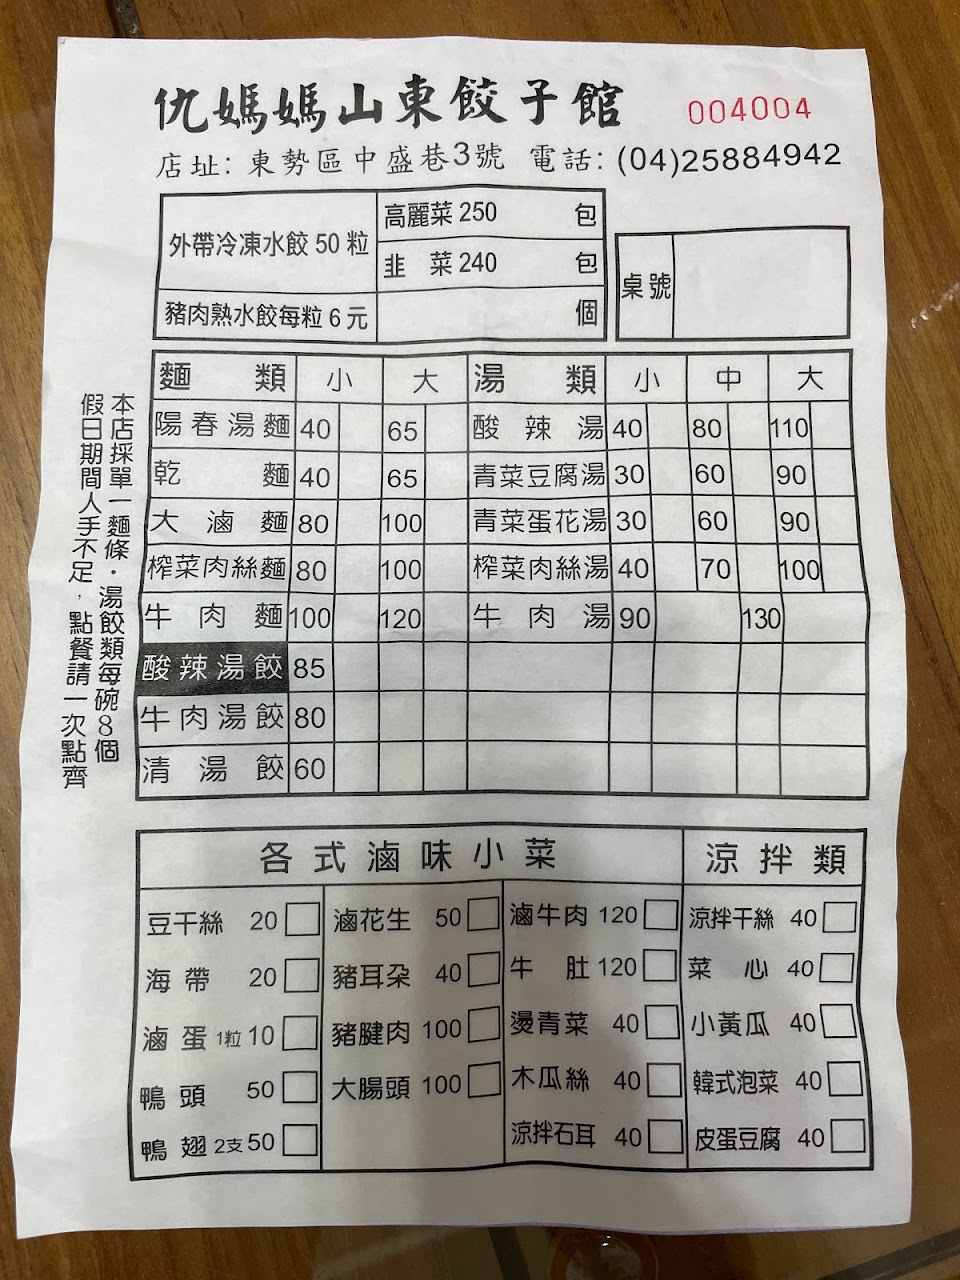 仇媽媽山東餃子館 004004
店址: 東勢區中盛巷3號 電話: (04)25884942
外帶冷凍水餃 50 粒 高麗菜 250 包
韭 菜 240 包
豬肉熟水餃每粒 6 元 個
桌號
本店採單一麵條・湯餃類每碗8個
假日期間人手不足,點餐請一次點齊
麵類 小 大 湯類 小 中 大
陽春湯麵 40 65 酸辣湯 40 80 110
乾麵 40 65 青菜豆腐湯 30 60 90
大滷麵 80 100 青菜蛋花湯 30 60 90
榨菜肉絲麵 80 100 榨菜肉絲湯 40 70 100
牛肉麵 100 120 牛肉湯 90 130
酸辣湯餃 85
牛肉湯餃 80
清湯餃 60
各式滷味小菜 涼拌類
豆干絲 20 滷花生 50 滷牛肉 120 涼拌干絲 40
海帶 20 豬耳朵 40 牛肚 120 菜心 40
滷蛋 1粒 10 豬腱肉 100 燙青菜 40 小黃瓜 40
鴨頭 50 大腸頭 100 木瓜絲 40 韓式泡菜 40
鴨翅 2支 50 涼拌石耳 40 皮蛋豆腐 40